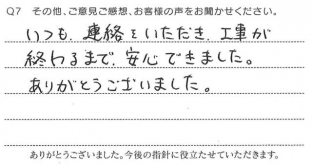 Q7 その他、ご意見ご感想、お客様の声をお聞かせください。
いつも、連絡をいただき、工事が
終わるまで、安心できました。
ありがとうございました。
ありがとうございました。今後の指針に役立たせていただきます。